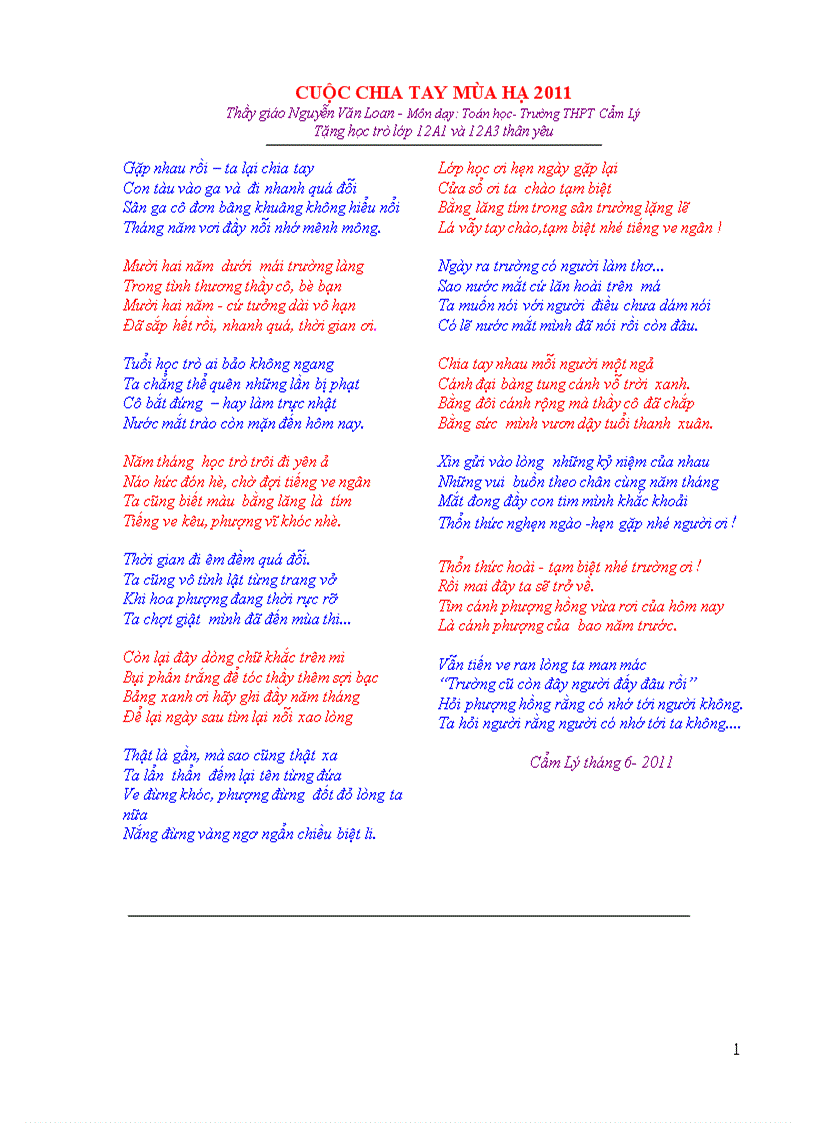 CUỘC CHIA TAY MÙA HẠ 2011
Thầy giáo Nguyễn Văn Loan - Môn dạy: Toán học- Trường THPT Cẩm Lý
Tặng học trò lớp 12A1 và 12A3 thân yêu
Gặp nhau rồi – ta lại chia tay
Con tàu vào ga và đi nhanh quá đỗi
Sân ga cô đơn bâng khuâng không hiểu nổi
Tháng năm vơi đầy nỗi nhớ mênh mông.
Mười hai năm dưới mái trường làng
Trong tình thương thầy cô, bè bạn
Mười hai năm - cứ tưởng dài vô hạn
Đã sắp hết rồi, nhanh quá, thời gian ơi.
Tuổi học trò ai bảo không ngang
Ta chẳng thể quên những lần bị phạt
Cô bắt đứng – hay làm trực nhật
Nước mắt trào còn mặn đến hôm nay.
Năm tháng học trò trôi đi yên ả
Náo hức đón hè, chờ đợi tiếng ve ngân
Ta cũng biết màu bằng lăng là tím
Tiếng ve kêu, phượng vĩ khóc nhè.
Thời gian đi êm đềm quá đỗi.
Ta cũng vô tình lật từng trang vở
Khi hoa phượng đang thời rực rỡ
Ta chợt giật mình đã đến mùa thi...
Còn lại đây dòng chữ khắc trên mi
Bụi phấn trắng để tóc thầy thêm sợi bạc
Bảng xanh ơi hãy ghi đầy năm tháng
Để lại ngày sau tìm lại nỗi xao lòng
Thật là gần, mà sao cũng thật xa
Ta lẩn thẩn đếm lại tên từng đứa
Ve đừng khóc, phượng đừng đốt đỏ lòng ta
nữa
Nắng đừng vàng ngơ ngẩn chiều biệt li.
Lớp học ơi hẹn ngày gặp lại
Cửa sổ ơi ta chào tạm biệt
Bằng lăng tím trong sân trường lặng lẽ
Lá vẫy tay chào,tạm biệt nhé tiếng ve ngân !
Ngày ra trường có người làm thơ...
Sao nước mắt cứ lăn hoài trên má
Ta muốn nói với người điều chưa dám nói
Có lẽ nước mắt mình đã nói rồi còn đâu.
Chia tay nhau mỗi người một ngả
Cánh đại bàng tung cánh vỗ trời xanh.
Bằng đôi cánh rộng mà thầy cô đã chắp
Bằng sức mình vươn dậy tuổi thanh xuân.
Xin gửi vào lòng những kỷ niệm của nhau
Những vui buồn theo chân cùng năm tháng
Mắt đong đầy con tim mình khắc khoải
Thổn thức nghẹn ngào -hẹn gặp nhé người ơi !
Thổn thức hoài - tạm biệt nhé trường ơi !
Rồi mai đây ta sẽ trở về.
Tìm cánh phượng hồng vừa rơi của hôm nay
Là cánh phượng của bao năm trước.
Vẫn tiến ve ran lòng ta man mác
“Trường cũ còn đây người đấy đâu rồi”
Hỏi phượng hồng rằng có nhớ tới người không.
Ta hỏi người rằng người có nhớ tới ta không....
Cẩm Lý tháng 6- 2011
1